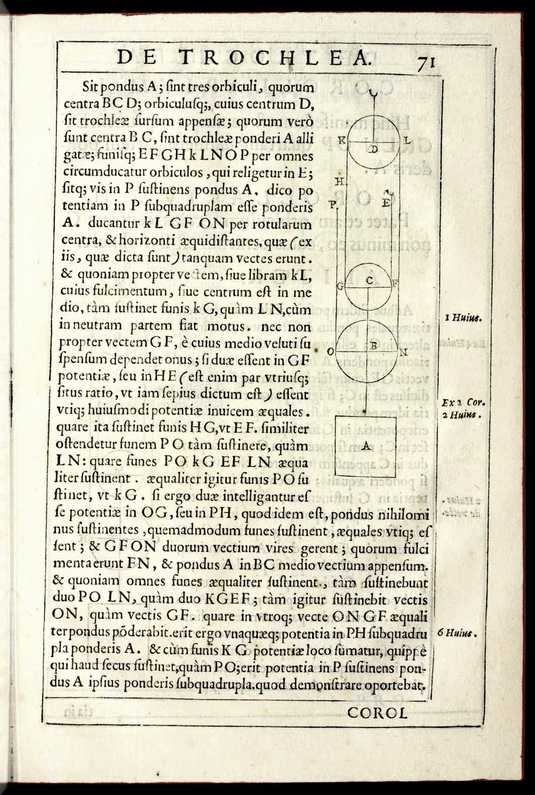 DE TROCHLEA. 71
Sit pondus A; sint tres orbiculi, quorum
centra B C D; orbiculusq;, cuius centrum D,
sit trochleæ sursum appensæ; quorum verò
sunt centra B C, sint trochleæ ponderi A alli
gatæ; funisq; E F G H k L N O P per omnes
circumducatur orbiculos, qui religetur in E;
sitq; vis in P sustinens pondus A. dico po
tentiam in P subquadruplam esse ponderis
A. ducantur k L GF ON per rotularum
centra, & horizonti æquidistantes, quæ (ex
iis, quæ dicta sunt) tanquam vectes erunt.
& quoniam propter vectem, siue libram k L,
cuius fulcimentum, siue centrum est in me
dio, tàm sustinet funis k G, quàm LN, cùm
in neutram partem fiat motus. nec non
propter vectem GF, è cuius medio veluti su
spensum dependet onus; si duæ essent in GF
potentiæ, seu in HE (est enim par vtriusq;
situs ratio, vt iam sepius dictum est) essent
vtiq; huiusmodi potentiæ inuicem æquales.
quare ita sustinet funis HG, vt EF. similiter
ostendetur funem PO tàm sustinere, quàm
LN: quare funes PO kG EF LN æqua
liter sustinent. æqualiter igitur funis PO su
stinet, vt kG. si ergo duæ intelligantur es
se potentiæ in OG, seu in PH, quod idem est, pondus nihilomi
nus sustinentes, quemadmodum funes sustinent, æquales vtiq; es
sent; & GF ON duorum vectium vires gerent; quorum fulci
menta erunt FN, & pondus A in BC medio vectium appensum.
& quoniam omnes funes æqualiter sustinent, tàm sustinebunt
duo PO LN, quàm duo KG EF; tàm igitur sustinebit vectis
ON, quàm vectis GF. quare in vtroq; vecte ON GF æquali
ter pondus põderabit. erit ergo vnaquæq; potentia in PH subquadru
pla ponderis A. & cùm funis KG potentiæ loco sumatur, quippè
qui haud secus sustinet, quàm PO; erit potentia in P sustinens pon-
dus A ipsius ponderis subquadrupla. quod demonstrare oportebat.
COROL
K
D
L
H
P
E
G
C
F
O
B
N
A
1 Huius.
Ex 2 Cor.
2 Huius.
6 Huius.